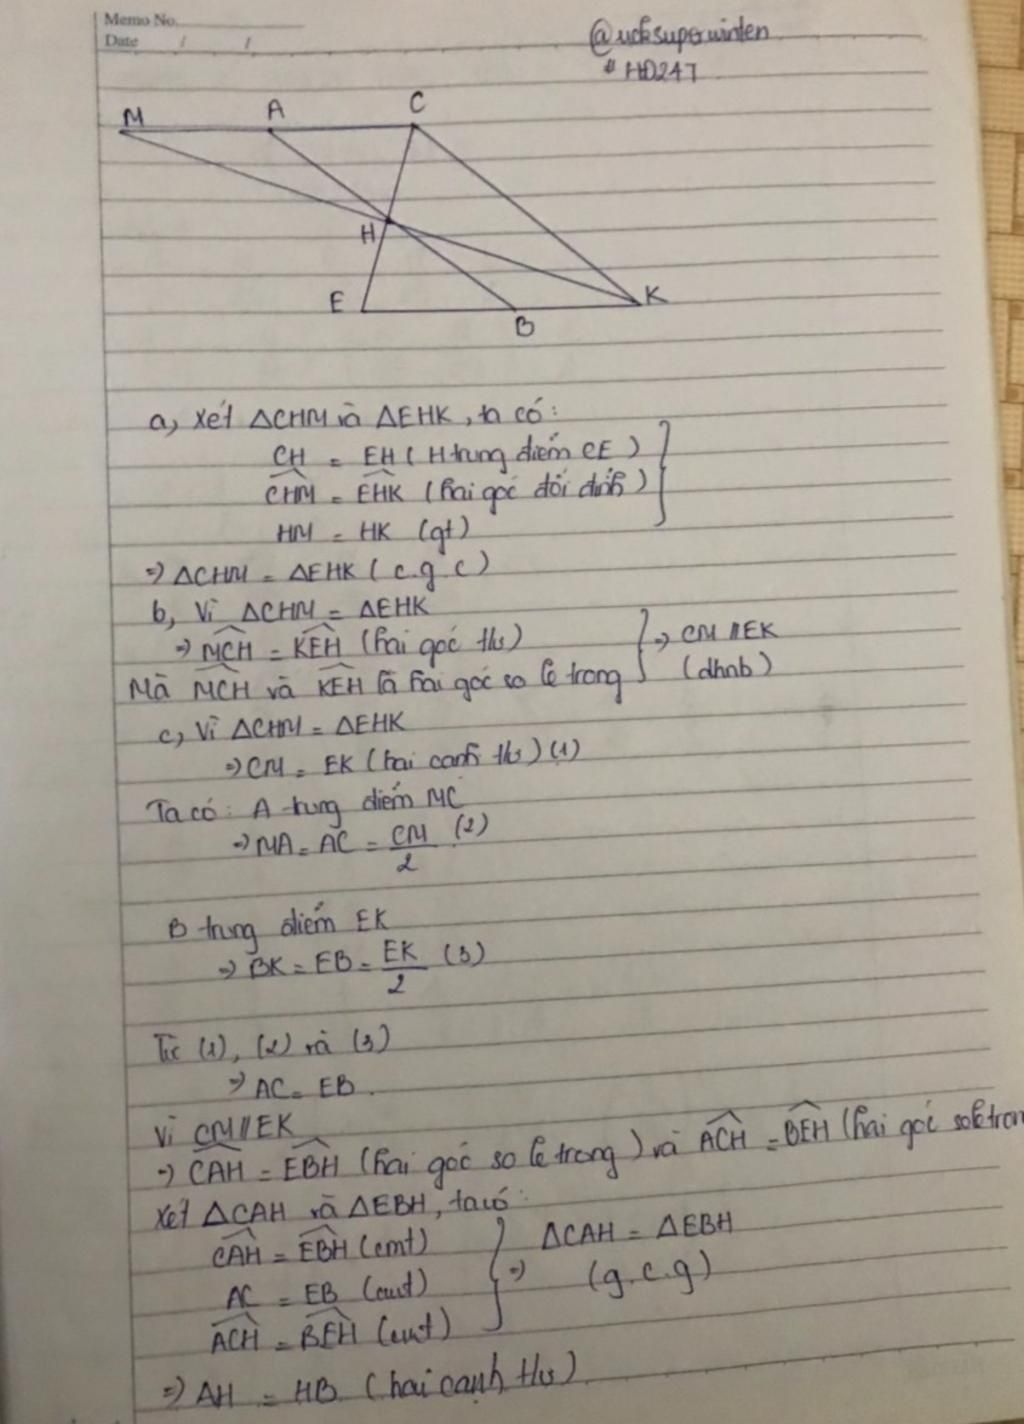 Memo No.
Date / /
@ucksuperwinten
#HD247
M A C
H
E B K
a, Xét ΔCHM và ΔEHK, ta có:
CH = EH (H trung điểm CE)
CHM = EHK (hai góc đối đỉnh)
HM = HK (gt)
=> ΔCHM = ΔEHK (c.g.c)
b, Vì ΔCHM = ΔEHK
=> MCH = KEH (hai góc t/ư) } => CM // EK
Mà MCH và KEH là hai góc so le trong (dhnb)
c, Vì ΔCHM = ΔEHK
=> CM = EK (hai cạnh t/ư) (1)
Ta có: A trung điểm MC
=> MA = AC = CM/2 (2)
B trung điểm EK
=> BK = EB = EK/2 (3)
Từ (1), (2) và (3)
=> AC = EB.
Vì CM // EK
=> CAH = EBH (hai góc so le trong) và ACH = BEH (hai góc so le tron
Xét ΔCAH và ΔEBH, ta có:
CAH = EBH (cmt) } => ΔCAH = ΔEBH
AC = EB (cmt) (g.c.g)
ACH = BEH (cmt)
=> AH = HB (hai cạnh t/ư)